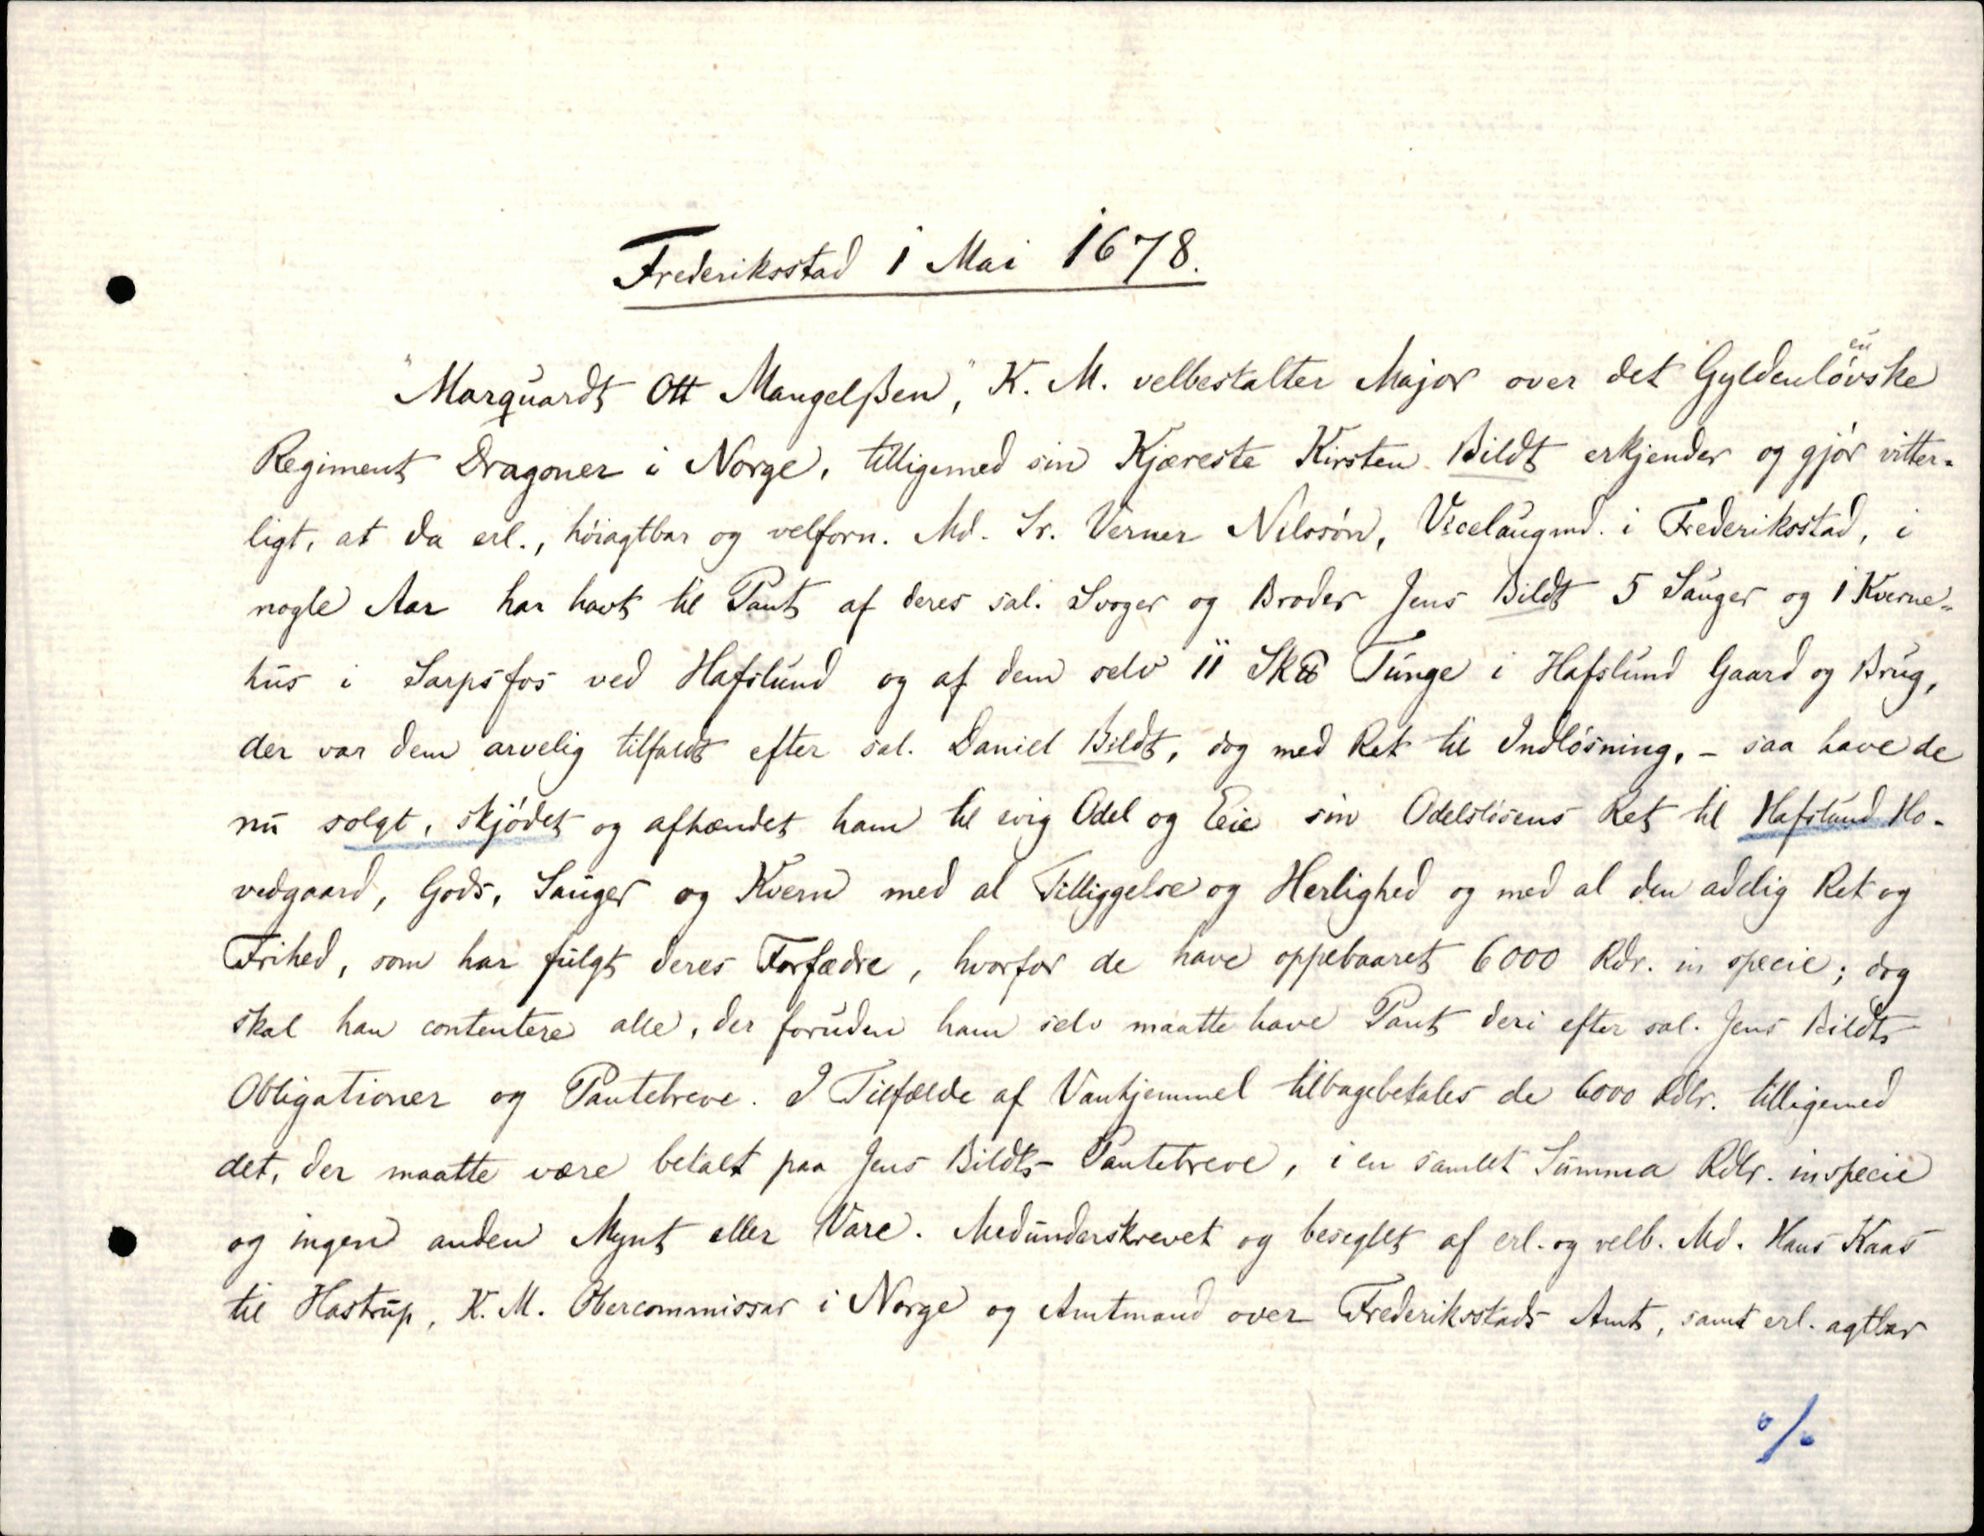 Frederiksstad 1 Mai 1678.
"Marquardt Ott Mangelßen", K. M. velbestalter Major over det Gyldenløvske
Regiment Dragoner i Norge, tilligemed sin Kjæreste Kirsten Bildt erkjender og gjør vitter-
ligt, at da erl., høiagtbar og velforn. Md. Sr. Verner Nilssøn, Vicelaugmd. i Frederiksstad, i
nogle Aar har havt til Pant af deres sal. Svoger og Broder Jens Bildt 5 Sauger og 1 Kverne-
hus i Sarpsfos ved Hafslund og af dem selv 11 Sk℔ Tunge i Hafslund Gaard og Brug,
der var dem arvelig tilfaldt efter sal. Daniel Bildt, dog med Ret til Indløsning, - saa have de
nu solgt, skjødet og afhændet ham til evig Odel og Eie sin Odelsløsens Ret til Hafslund Ho-
vedgaard, Gods, Sauger og Kvern med al Tilliggelse og Herlighed og med al den adelig Ret og
Frihed, som har fulgt deres Forfædre, hvorfor de have oppebaaret 6000 Rdr. in specie; dog
skal han contentere alle, der foruden ham selv maatte have Pant deri efter sal. Jens Bildts
Obligationer og Pantebreve. I Tilfælde af Vanhjemmel tilbagebetales de 6000 Rdlr. tilligemed
det, der maatte være betalt paa Jens Bildts Pantebreve, i en samlet Summa Rdlr. in specie
og ingen anden Mynt eller Vare. Medunderskrevet og beseglet af erl. og velb. Md. Hans Kaas
til Hastrup, K. M. Obercommissar i Norge og Amtmand over Frederiksstads Amt, samt erl. agtbar
%